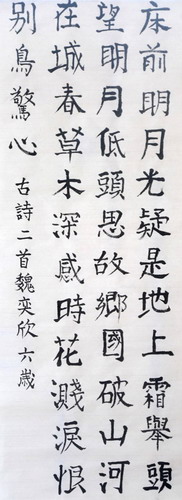 床前明月光疑是地上霜舉頭
望明月低頭思故鄉國破山河
在城春草木深感時花濺淚恨
别鳥驚心古詩二首魏奕欣六歲